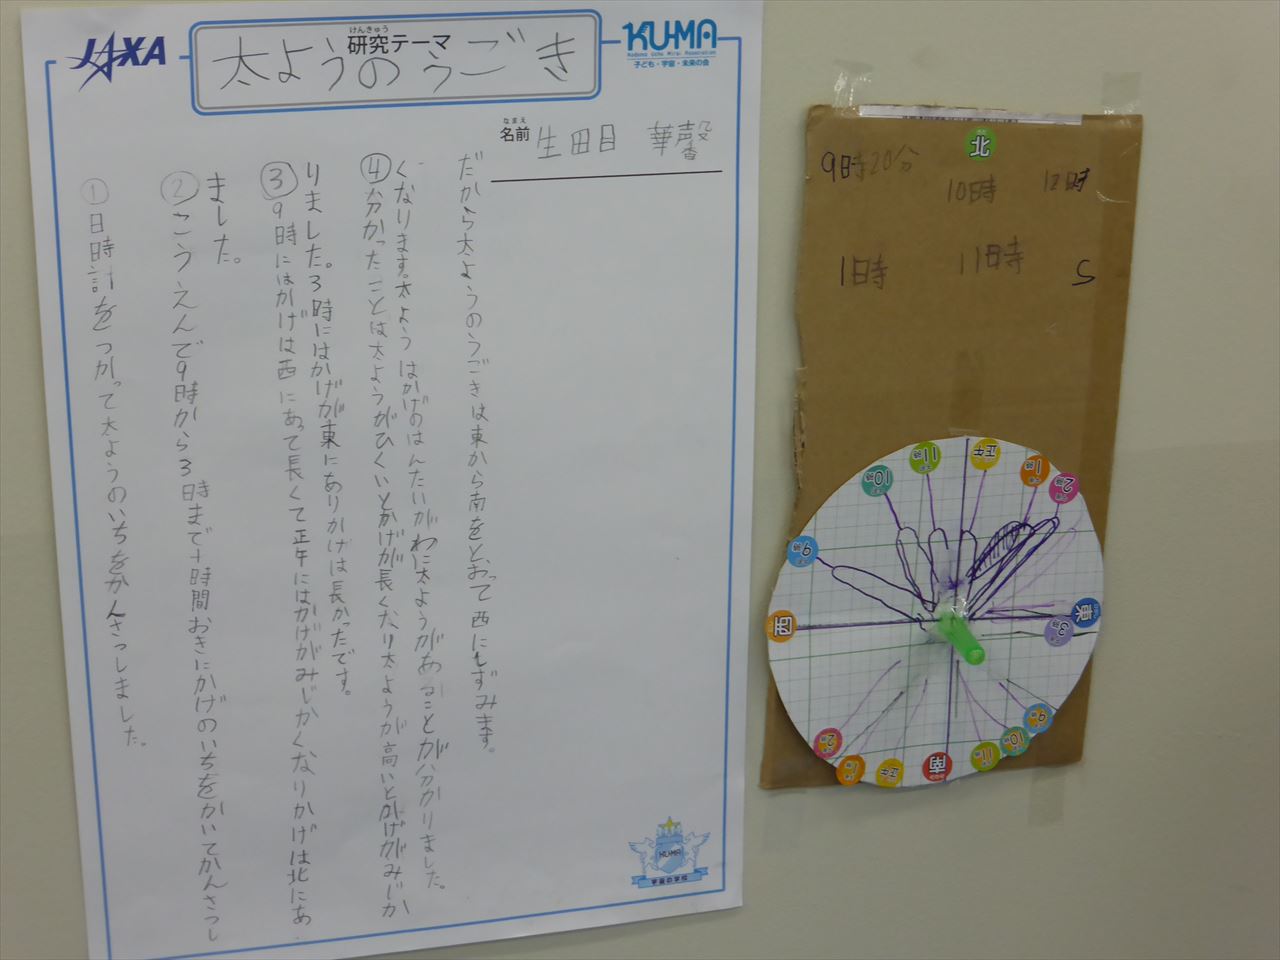 JAXA
けんきゅう
研究テーマ
太ようのうごき
KU-MA
Kodomo Uchu Mirai Association
子ども・宇宙・未来の会
なまえ
名前 生田目 華馨
①日時計をつかって太ようのいちをかんさつしました。
②こうえんで9時から3時まで十時間おきにかげのいちをかいてかんさつし
ました。
③9時にはかげは西にあって長くて正午にはかげがみじかくなりかげは北にあ
りました。3時にはかげが東にありかげは長かったです。
④分かったことは太ようがひくいとかげが長くなり太ようが高いとかげがみじか
くなります。太ようはかげのはんたいがわに太ようがあることが分かりました。
だから太ようのうごきは東から南をとおって西にしずみます。
KU-MA
宇宙の学校
北
9時20分
10時
12時
1時
11時
S
正午
11時
1時
10時
2時
9時
西
東
3時
9時
2時
10時
1時
正午
南
11時